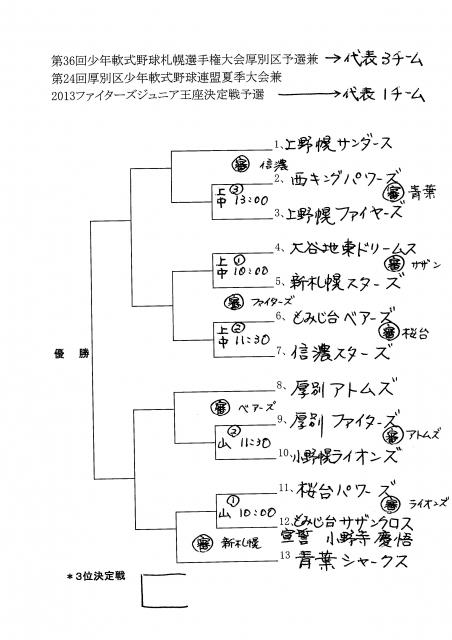 第36回少年軟式野球札幌選手権大会厚別区予選兼 → 代表3チーム
第24回厚別区少年軟式野球連盟夏季大会兼
2013ファイターズジュニア王座決定戦予選 → 代表1チーム
1、上野幌サンダース
審 信濃
2、西キングパワーズ
上中 ③ 13:00
審 青葉
3、上野幌ファイヤーズ
4、大谷地東ドリームス
上中 ① 10:00
審 サザン
5、新札幌スターズ
審 ファイターズ
6、もみじ台ベアーズ
上中 ② 11:30
審 桜台
7、信濃スターズ
優勝
8、厚別アトムズ
審 ベアーズ
9、厚別ファイターズ
山 ② 11:30
審 アトムズ
10、小野幌ライオンズ
11、桜台パワーズ
山 ① 10:00
審 ライオンズ
12、もみじ台サザンクロス
宣誓 小野寺慶悟
審 新札幌
13 青葉シャークス
*3位決定戦